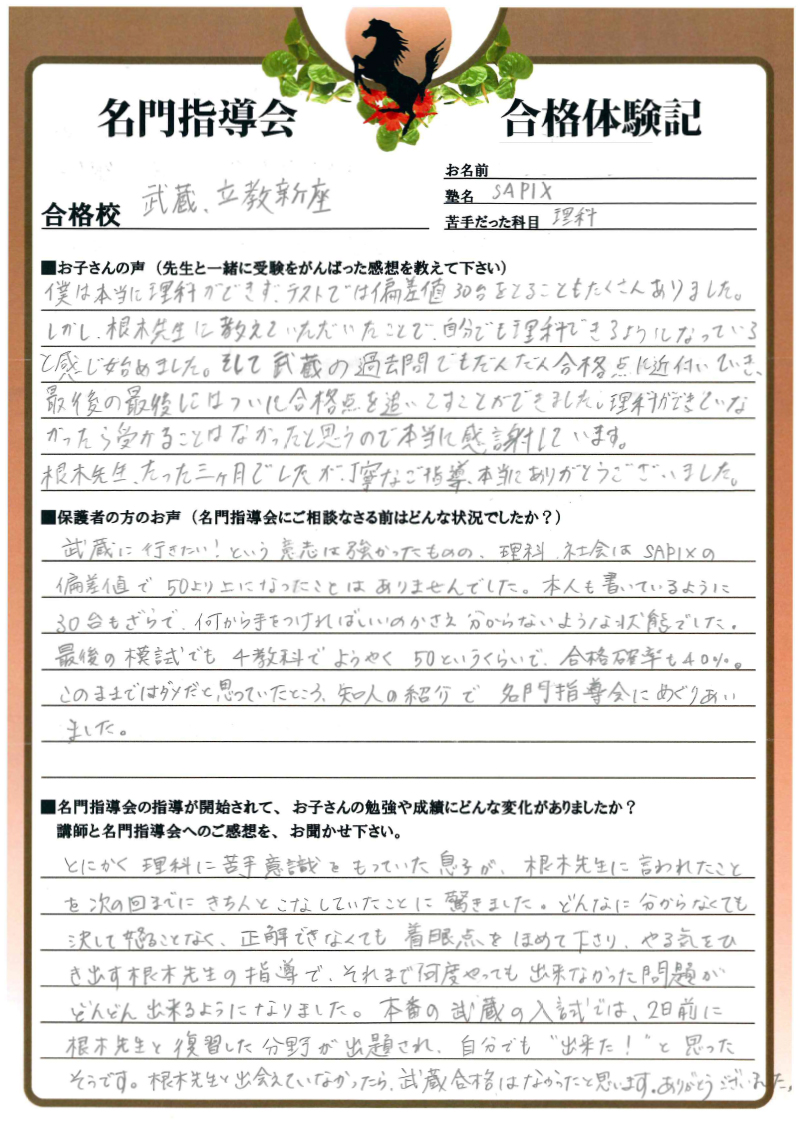 名門指導会 合格体験記
お名前
合格校 武蔵、立教新座
塾名 SAPIX
苦手だった科目 理科
■お子さんの声（先生と一緒に受験をがんばった感想を教えて下さい）
僕は本当に理科ができず、テストでは偏差値30台をとることもたくさんありました。
しかし、根木先生に教えていただいたことで、自分でも理科できるようになっている
と感じ始めました。そして武蔵の過去問でもだんだん合格点に近付いていき、
最後の最後にはついに合格点を追いこすことができました。理科ができていな
かったら受かることはなかったと思うので本当に感謝しています。
根木先生、たった三ヶ月でしたが、丁寧なご指導、本当にありがとうございました。
■保護者の方のお声（名門指導会にご相談なさる前はどんな状況でしたか？）
武蔵に行きたい！という意志は強かったものの、理科、社会はSAPIXの
偏差値で50より上になったことはありませんでした。本人も書いているように
30台もざらで、何から手をつければいいのかさえ分からないような状態でした。
最後の模試でも4教科でようやく50というくらいで、合格確率も40%。
このままではダメだと思っていたところ、知人の紹介で名門指導会にめぐりあい
ました。
■名門指導会の指導が開始されて、お子さんの勉強や成績にどんな変化がありましたか？
講師と名門指導会へのご感想を、お聞かせ下さい。
とにかく理科に苦手意識をもっていた息子が、根木先生に言われたこと
を次の回までにきちんとこなしていたことに驚きました。どんなに分からなくても
決して怒ることなく、正解できなくても着眼点をほめて下さり、やる気をひ
き出す根木先生の指導で、それまで何度やっても出来なかった問題が
どんどん出来るようになりました。本番の武蔵の入試では、2日前に
根木先生と復習した分野が出題され、自分でも"出来た！"と思った
そうです。根木先生と出会えていなかったら、武蔵合格はなかったと思います。ありがとうございました。